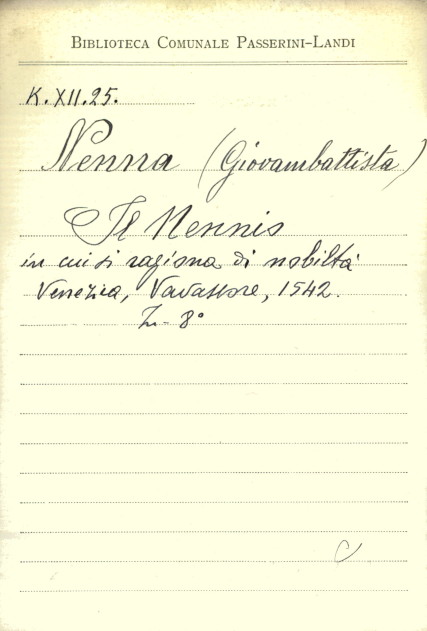 BIBLIOTECA COMUNALE PASSERINI-LANDI
K.XII.25.
Nenna (Giovambattista)
Il Nennio
in cui si ragiona di nobiltà
Venezia, Vavassore, 1542.
In 8°